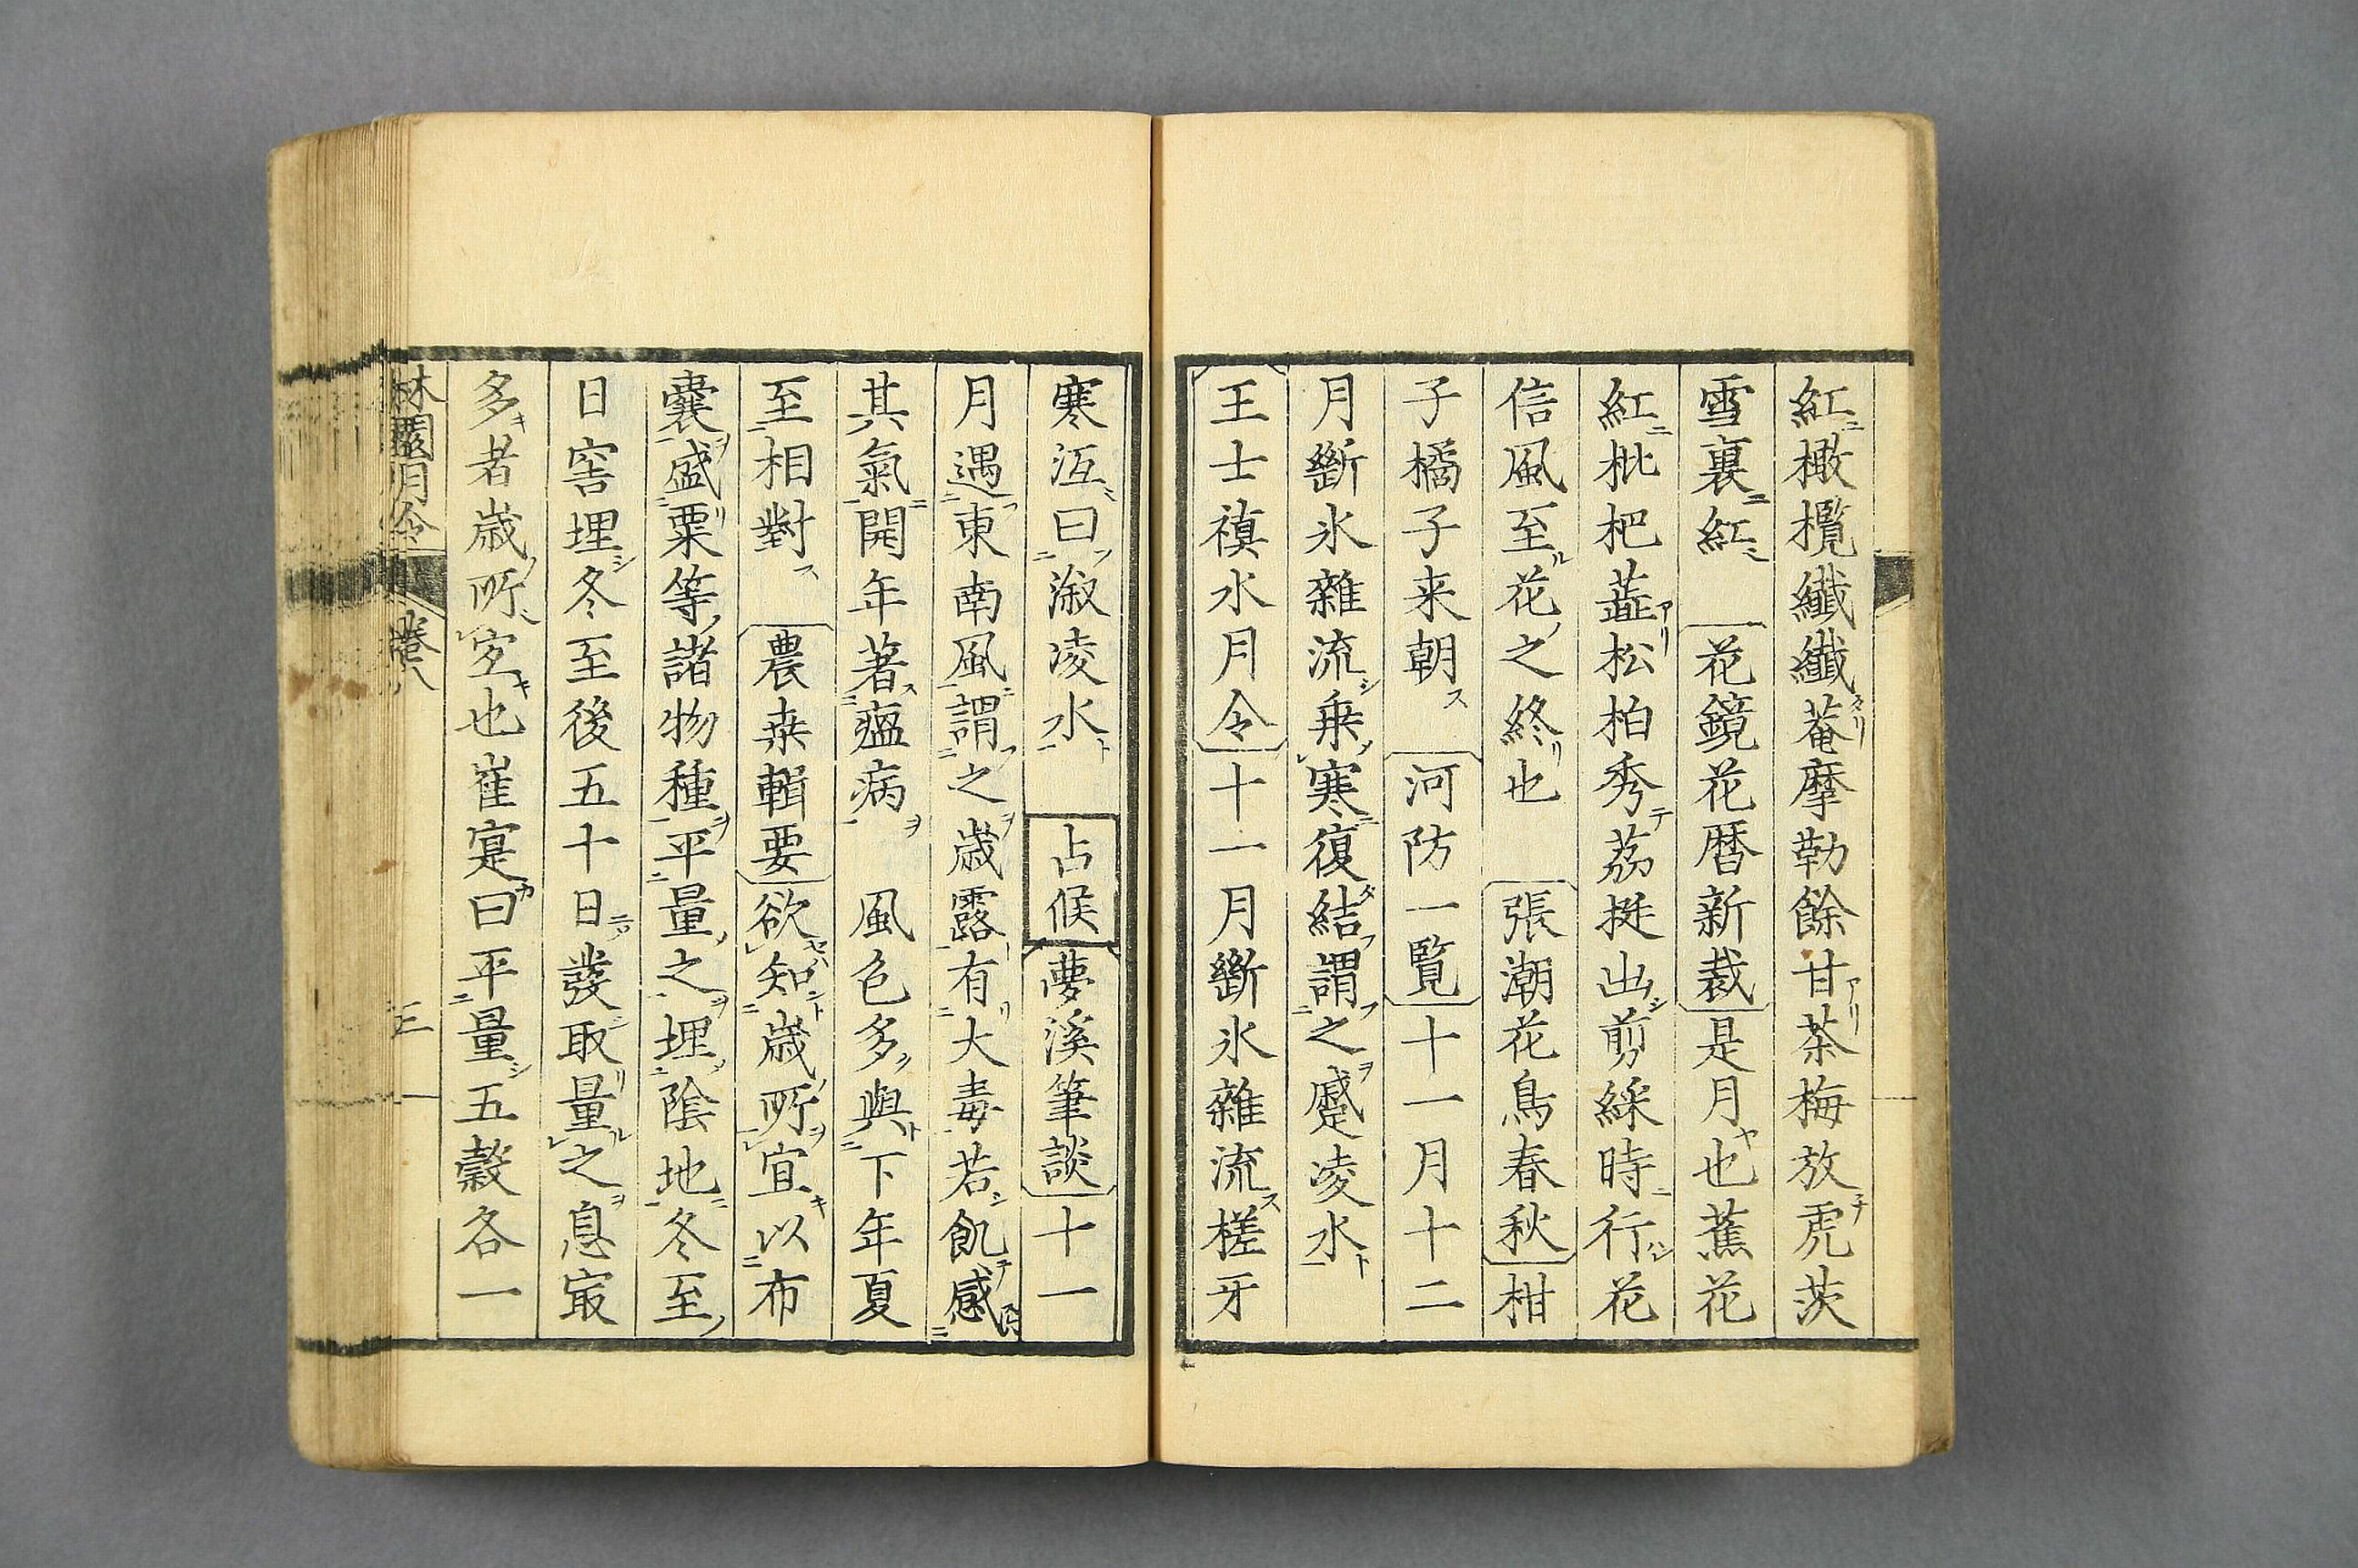 紅橄欖纖纖菴摩勒餘甘茶梅放虎茨
雪裏紅 花鏡花暦新裁是月也蕉花
紅枇杷蘁松柏秀荔挺出剪綵時行花
信風至花之終也 張潮花鳥春秋柑
子橘子来朝 河防一覧十一月十二
月斷氷雜流乗寒復結謂之蹙凌水
王士禛水月令十一月斷氷雜流槎牙
寒沍曰淑凌水 占候夢溪筆談十一
月遇東南風謂之歳露有大毒若飢感
其氣開年著瘟病 風色多與下年夏
至相對 農桒輯要欲知歳所宜以布
囊盛粟等諸物種平量之埋陰地冬至
日窖埋冬至後五十日發取量之息冣
多者歳所宜也崔寔曰平量五穀各一
林園月令 巻八 三